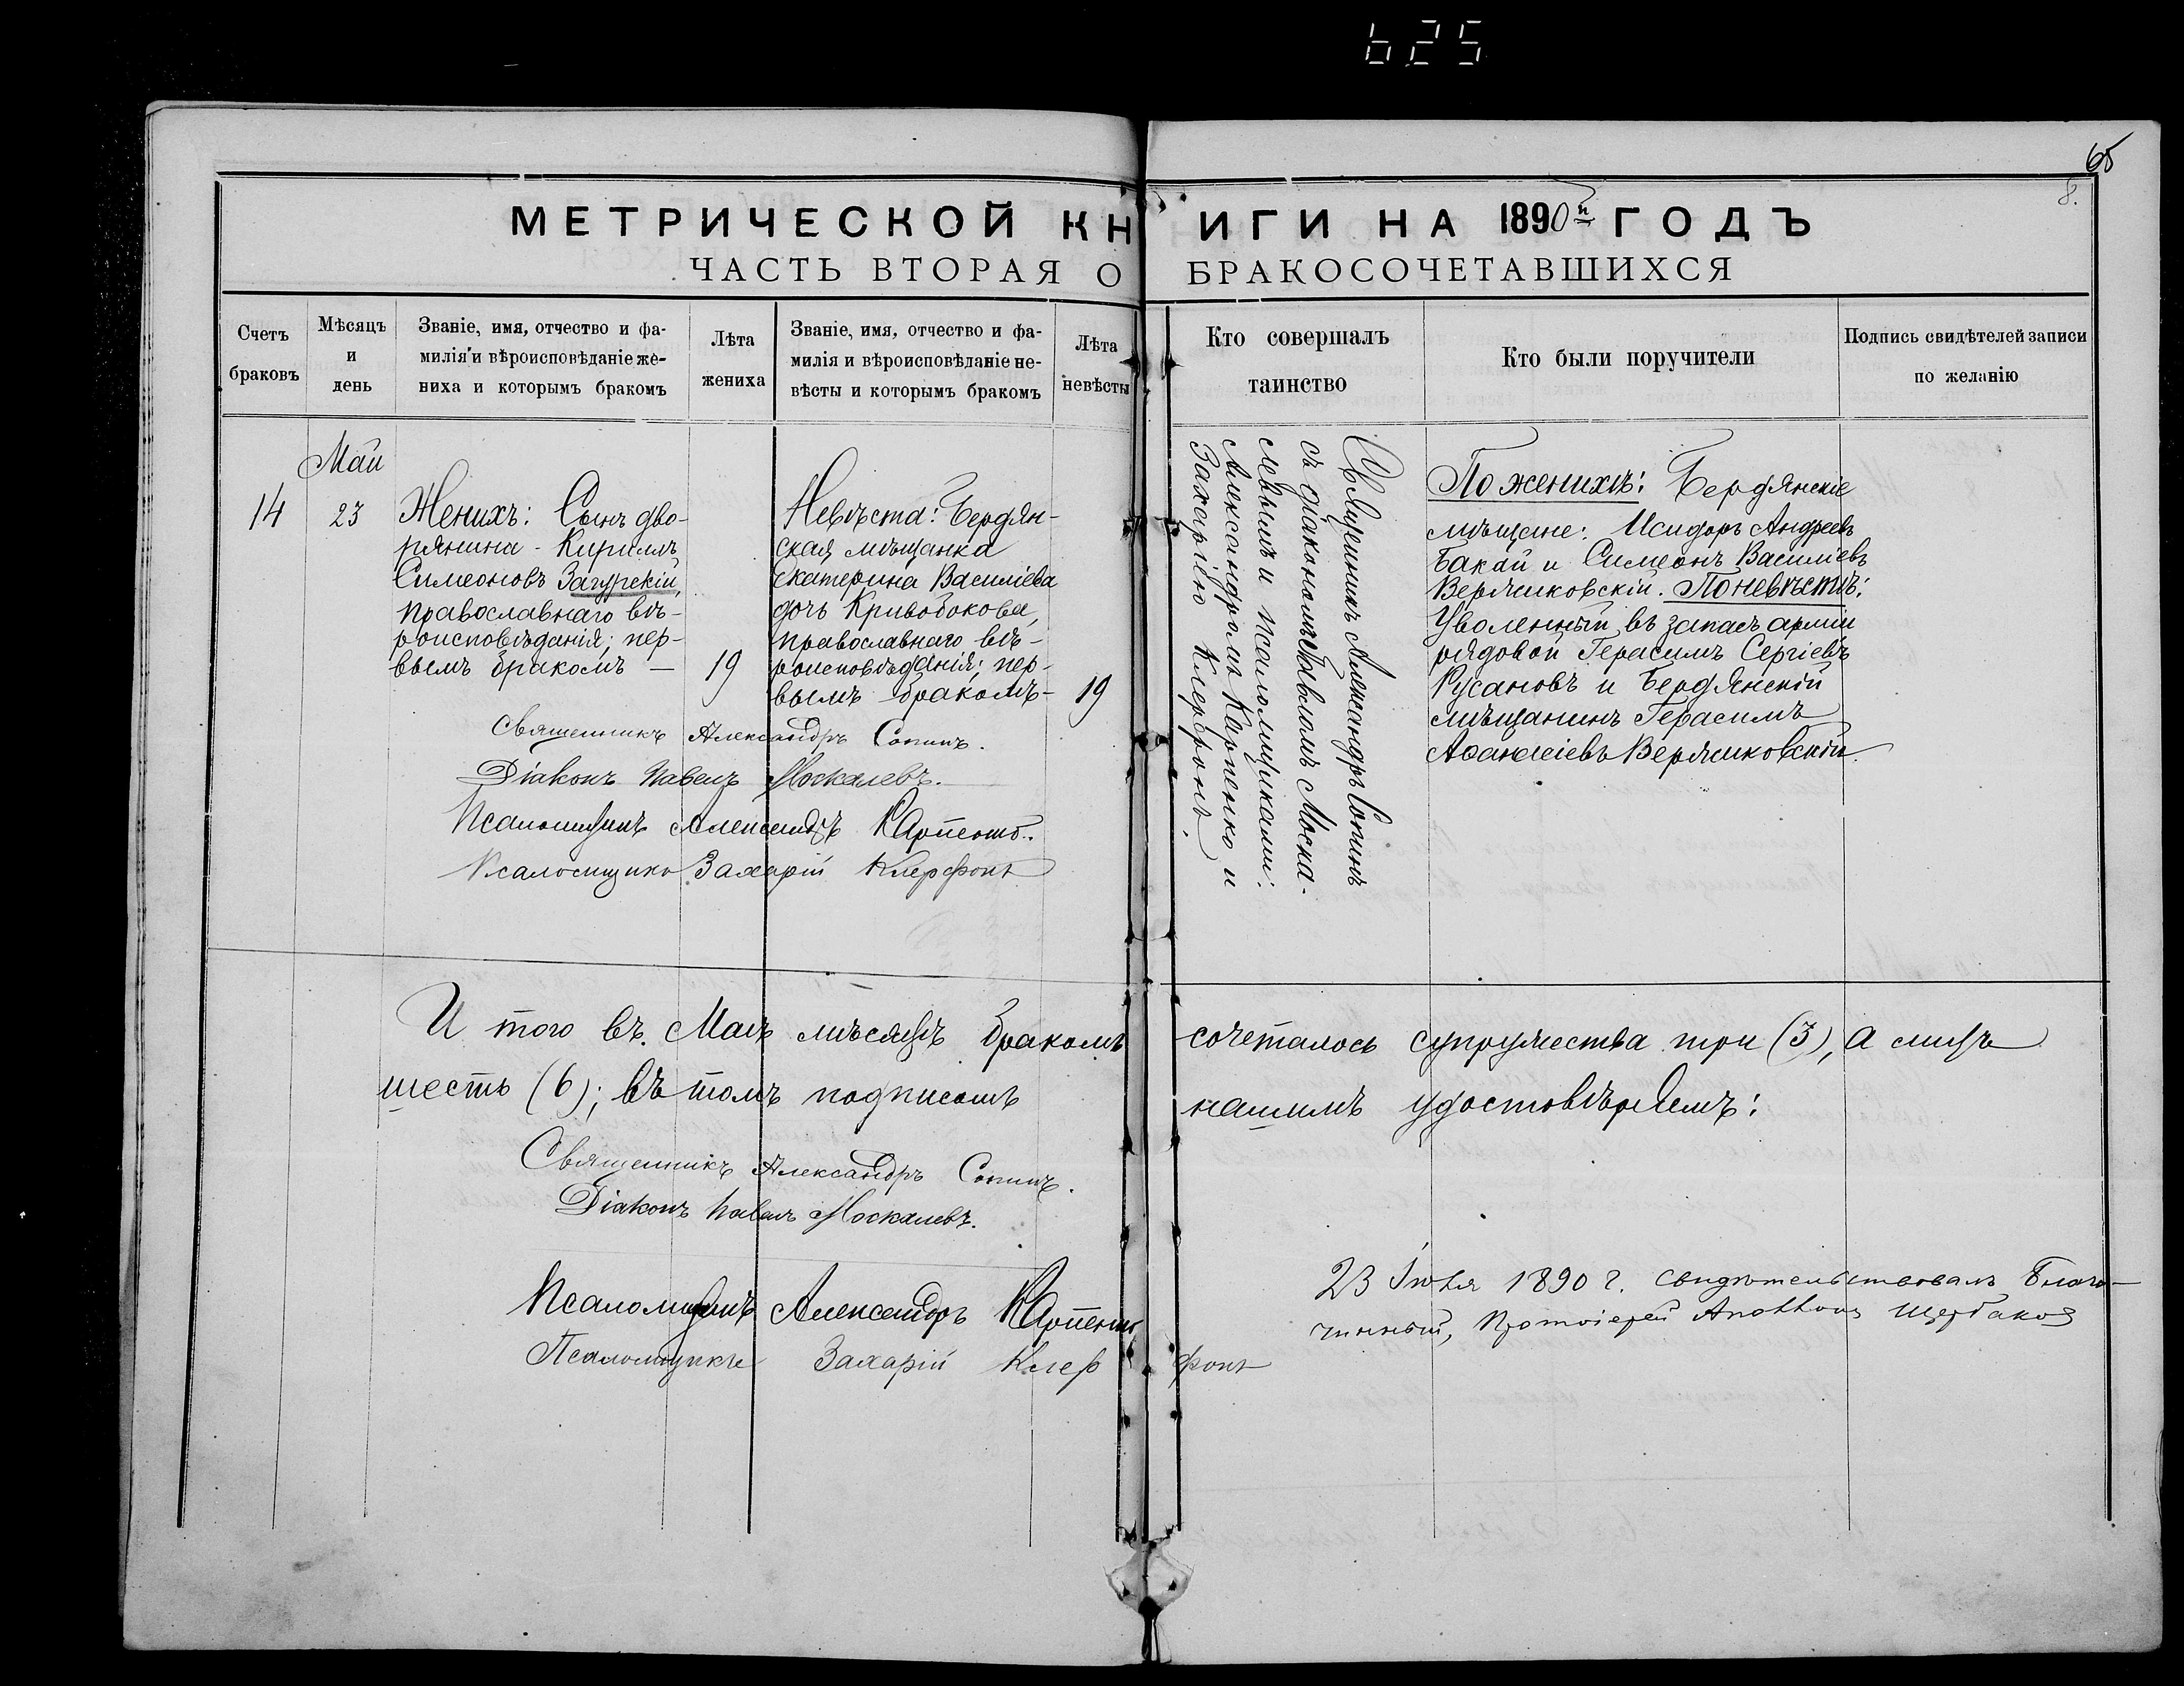 625
65
8.
МЕТРИЧЕСКОЙ КНИГИ НА 1890й ГОДЪ
ЧАСТЬ ВТОРАЯ О БРАКОСОЧЕТАВШИХСЯ
Счетъ
браковъ
Мѣсяцъ
и
день
Званіе, имя, отчество и фа-
милія и вѣроисповѣданіе же-
ниха и которымъ бракомъ
Лѣта
жениха
Званіе, имя, отчество и фа-
милія и вѣроисповѣданіе не-
вѣсты и которымъ бракомъ
Лѣта
невѣсты
Кто совершалъ
таинство
Кто были поручители
Подпись свидѣтелей записи
по желанію
14
Май
23
Женихъ: Сынъ дво-
рянина - Кириллъ
Симеоновъ Загурскій,
православнаго вѣ-
роисповѣданія; пер-
вымъ бракомъ —
19
Невѣста: Бердян-
ская мѣщанка
Екатерина Василіева
дочь Кривобокова,
православнаго вѣ-
роисповѣданія; пер-
вымъ бракомъ-
19
Священникъ Александръ Сопинъ
съ діакономъ Павломъ Моска-
левымъ и псаломщиками:
Александромъ Карпенко и
Захаріею Клерфонъ.
По женихѣ: Бердянскіе
мѣщане: Исидоръ Андреевъ
Бакай и Симеонъ Василіевъ
Верликовскій. По невѣстѣ:
Уволенный въ запасъ арміи
рядовой Герасимъ Сергіевъ
Русановъ и Бердянскій
мѣщанинъ Герасимъ
Аѳанасіевъ Верликовскій.
Священникъ Александръ Сопинъ.
Діаконъ Павелъ Москалевъ.
Псаломщикъ Александръ Карпенко.
Псаломщикъ Захарій Клерфонъ
И того въ Маѣ мѣсяцѣ бракомъ сочеталось супружества три (3), а лицъ
шесть (6); въ томъ подписомъ нашимъ удостовѣряемъ:
Священникъ Александръ Сопинъ.
Діаконъ Павелъ Москалевъ.
Псаломщикъ Александръ Карпенко
Псаломщикъ Захарій Клерфонъ
23 Іюля 1890 г. свидѣтельствовалъ Благо-
чинный, Протоіерей Щербаковъ